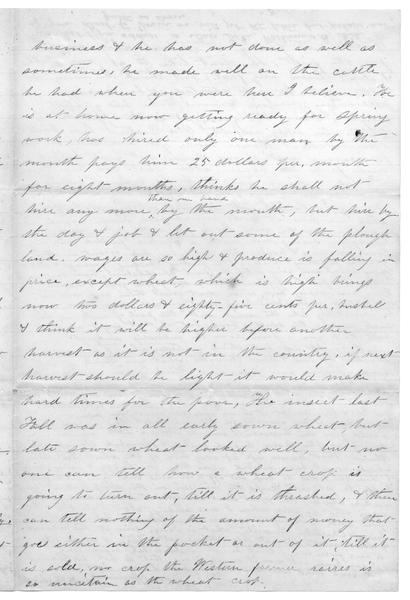 business & he has not done as well as
sometimes, he made well on the cattle
he had when you were here I believe. He
is at home now getting ready for Spring
work, has hired only one man by the
month pays him 25 dollars per, month
for eight months, thinks he shall not
than one hand
hire any more by the month, but hire by
the day & job & let out some of the plough
land. wages are so high & produce is falling in
price, except wheat, which is high brings
now two dollars & eighty-five cents per, bushell
& think it will be higher before another
harvest as it is not in the country, if next
harvest should be light it would make
hard times for the poor, The insect last
Fall was in all early sown wheat but
late sown wheat looked well, but no
one can tell how a wheat crop is
going to turn out, till it is thrashed, & then
can tell nothing of the amount of money that
goes either in the pocket or out of it, till it
is sold, no crop the Western farmer raises is
so uncertain as the wheat crop.